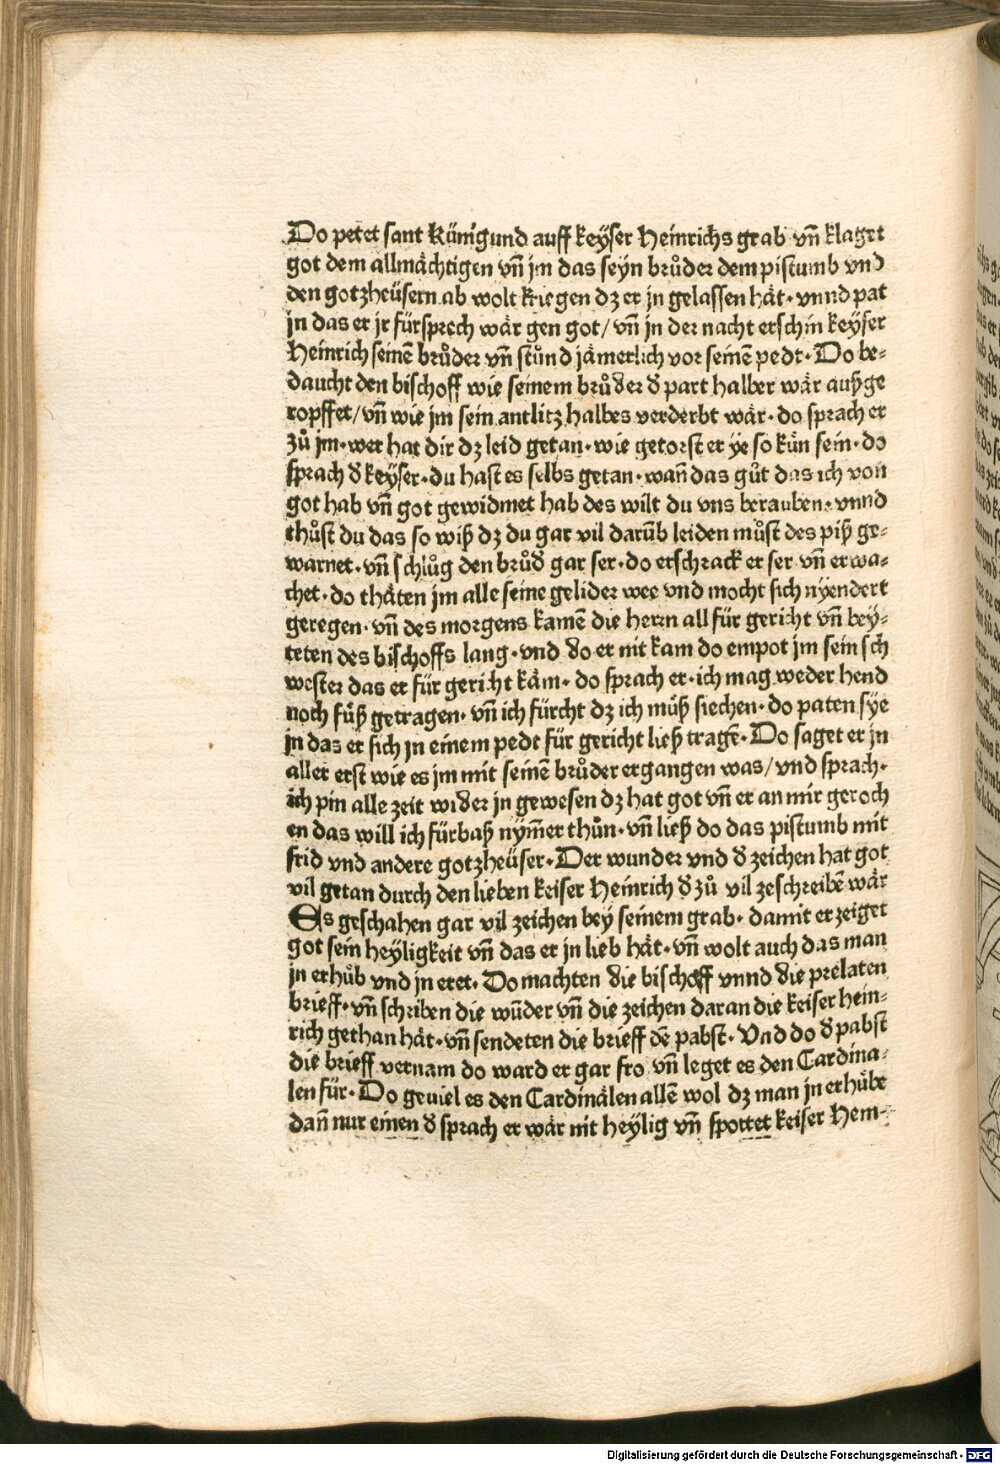 Do petet sant Künigund auff keÿser Heinrichs grab vn̄ klaget
got dem allmächtigen vn̄ jm das seÿn brůder dem pistumb vnd
den gotzheüsern ab wolt kriegen dz er jn gelassen hät· vnnd pat
jn das er jr fürsprech wär gen got/ vn̄ in der nacht erschin keÿser
Heinrich seinē brůder vn̄ stůnd jämerlich vor seinē pedt· Do be⸗
daucht den bischoff wie seinem brůder d̕ part halber wär außge
ropffet/ vn̄ wie jm sein antlitz halbes verderbt wär· do sprach er
zů jm· wer hat dir dz leid getan· wie getorst er ÿe so kün sein· do
sprach d̕ keÿser· du hast es selbs getan· wan̄ das gůt das ich von
got hab vn̄ got gewidmet hab des wilt du vns berauben· vnnd
thůst du das so wiß dz du gar vil darūb leiden můst des piß ge⸗
warnet· vn̄ schlůg den brůd̕ gar ser· do erschrack er ser vn̄ erwa⸗
chet· do thäten jm alle seine gelider wee vnd mocht sich nÿendert
geregen· vn̄ des morgens kamē die herrn all für gericht vn̄ beÿ⸗
teten des bischoffs lang· vnd do er nit kam do empot jm sein sch
wester das er für gericht käm· do sprach er· ich mag weder hend
noch füß getragen· vn̄ ich fürcht dz ich můß siechen· do paten sÿe
jn das er sich jn einem pedt für gericht ließ tragē· Do saget er jn
aller erst wie es jm mit seinē brůder ergangen was/ vnd sprach·
ich pin alle zeit wider jn gewesen dz hat got vn̄ er an mir geroch
en das will ich fürbaß nÿm̄er thůn· vn̄ ließ do das pistumb mit
frid vnd andere gotzheüser· Der wunder vnd d̕ zeichen hat got
vil getan durch den lieben keiser Heinrich d̕ zů vil zeschreibē wär
Es geschahen gar vil zeichen beÿ seinem grab· damit erzeiget
got sein heÿligkeit vn̄ das er jn lieb hät· vn̄ wolt auch das man
jn erhůb vnd jn eret· Do machten die bischoff vnnd die prelaten
brieff· vn̄ schriben die wūder vn̄ die zeichen daran die keiser hein⸗
rich gethan hät· vn̄ sendeten die brieff dē pabst· Vnd do d̕ pabst
die brieff vernam do ward er gar fro vn̄ leget es den Cardina⸗
len für· Do geuiel es den Cardinälen allē wol dz man jn erhübe
dan̄ nur einen d̕ sprach er wär nit heÿlig vn̄ spottet keiser Hein⸗
Digitalisierung gefördert durch die Deutsche Forschungsgemeinschaft - DFG